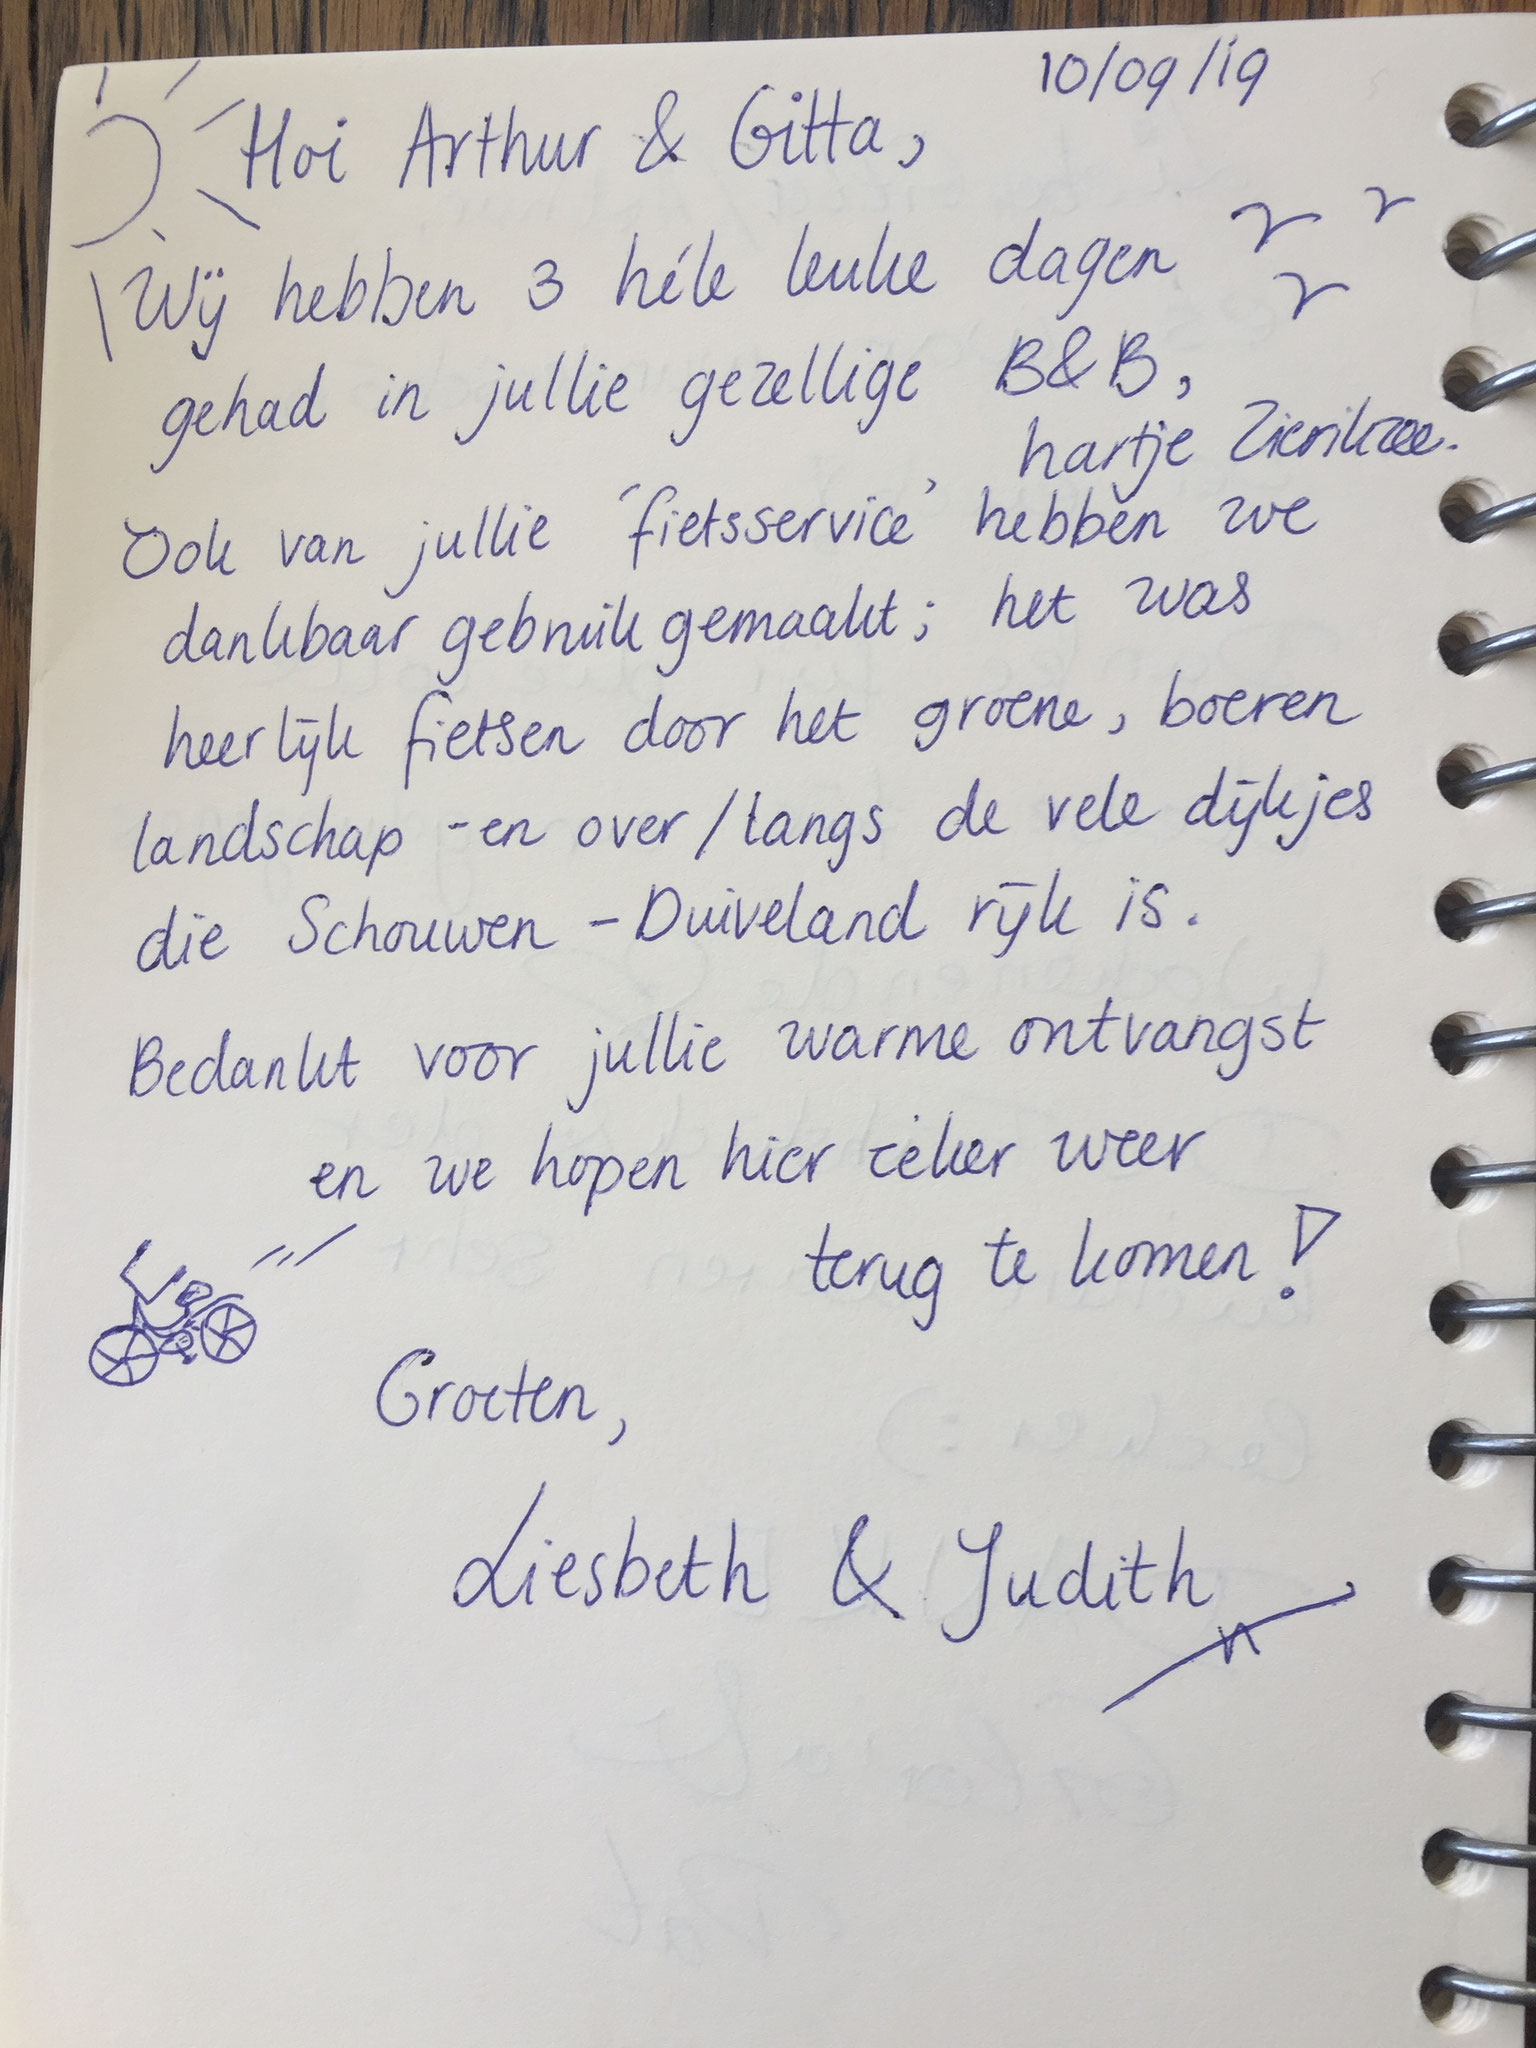 10/09/19
Hoi Arthur & Gitta,
Wij hebben 3 héle leuke dagen
gehad in jullie gezellige B&B,
hartje Zierikzee.
Ook van jullie 'fietsservice' hebben we
dankbaar gebruik gemaakt; het was
heerlijk fietsen door het groene, boeren
landschap -en over/langs de vele dijkjes
die Schouwen - Duiveland rijk is.
Bedankt voor jullie warme ontvangst
en we hopen hier zéker weer
terug te komen!
Groeten,
Liesbeth & Judith